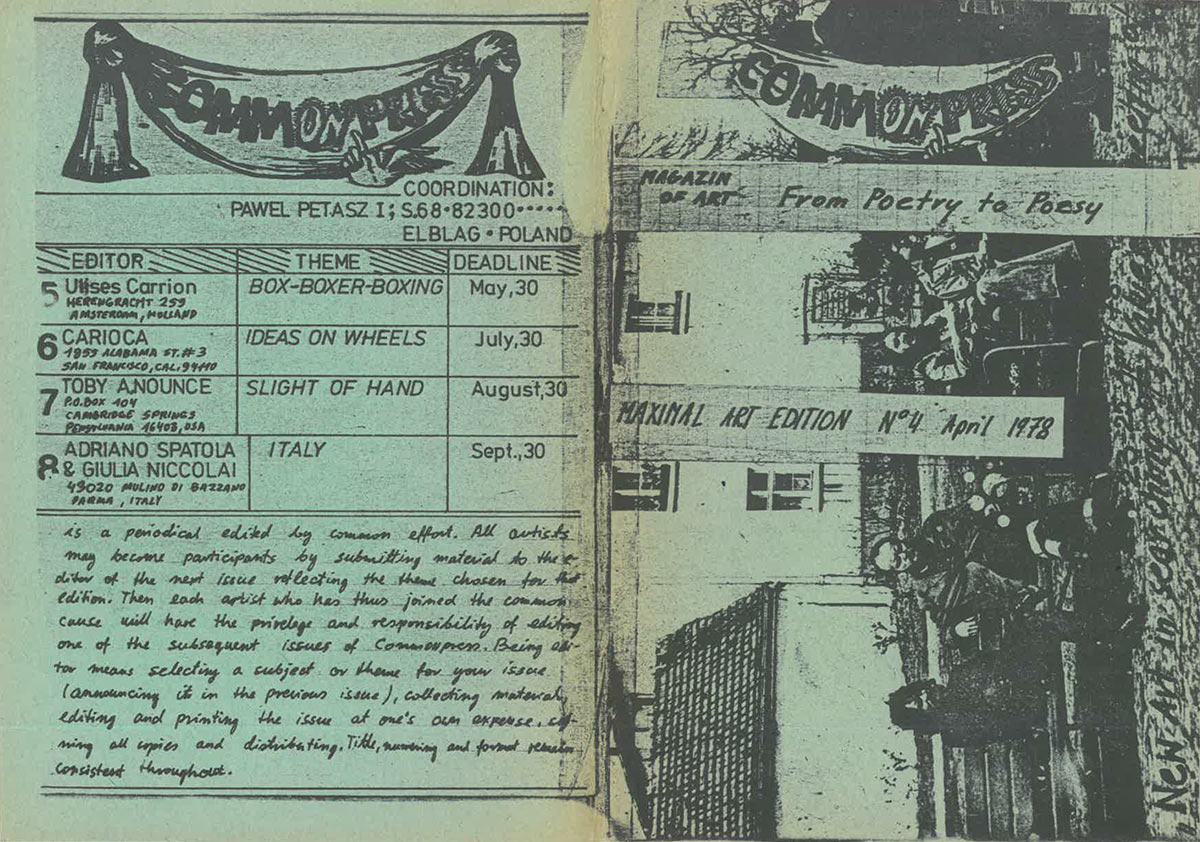 COMMONPRESS
COORDINATION:
PAWEL PETASZ I; S.68·82300·····
ELBLAG • POLAND
EDITOR THEME DEADLINE
5 Ulises Carrion BOX-BOXER-BOXING May,30
HERENGRACHT 259
AMSTERDAM, HOLLAND
6 CARIOCA IDEAS ON WHEELS July,30
1853 ALABAMA ST.#3
SAN FRANCISCO, CAL. 94110
7 TOBY A.NOUNCE SLIGHT OF HAND August,30
P.O.BOX 104
CAMBRIDGE SPRINGS
PENNSYLVANIA 16403, USA
8 ADRIANO SPATOLA ITALY Sept.,30
& GIULIA NICCOLAI
43020 MULINO DI BAZZANO
PARMA, ITALY
is a periodical edited by common effort. All artists
may become participants by submitting material to the e-
ditor of the next issue reflecting the theme chosen for that
edition. Then each artist who has thus joined the common
cause will have the privelege and responsibility of editing
one of the subsequent issues of Commonpress. Being edi-
tor means selecting a subject or theme for your issue
(announcing it in the previous issue), collecting material,
editing and printing the issue at one's own expense, sig-
ning all copies and distributing. Title, numbering and format remain
consistent throughout.
COMMONPRESS
MAGAZIN
OF ART
From Poetry to Poesy
MAXIMAL ART EDITION Nº4 April 1978
Art in searching of